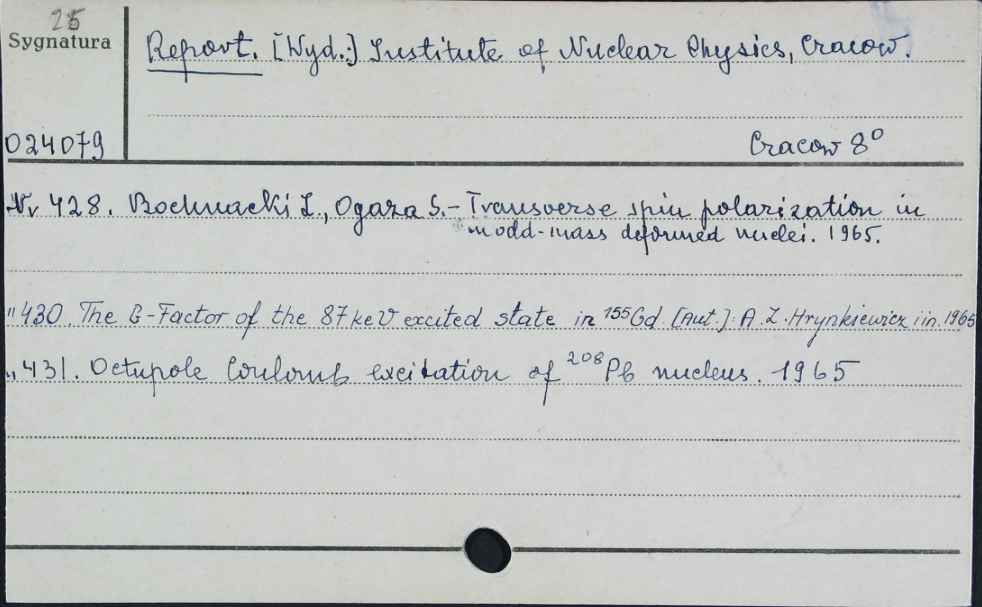 25
Sygnatura
Report. [Wyd.:] Institute of Nuclear Physics, Cracow.
024079
Cracow 8°
Nr 428. Bochnacki Z., Ogaza S. – Transverse spin polarization in
in odd-mass deformed nuclei. 1965.
" 430. The G-Factor of the 87 keV excited state in ¹⁵⁵Gd [Aut.]: A. Z. Hrynkiewicz i in. 1965
" 431. Octupole Coulomb excitation of ²⁰⁸Pb nucleus. 1965